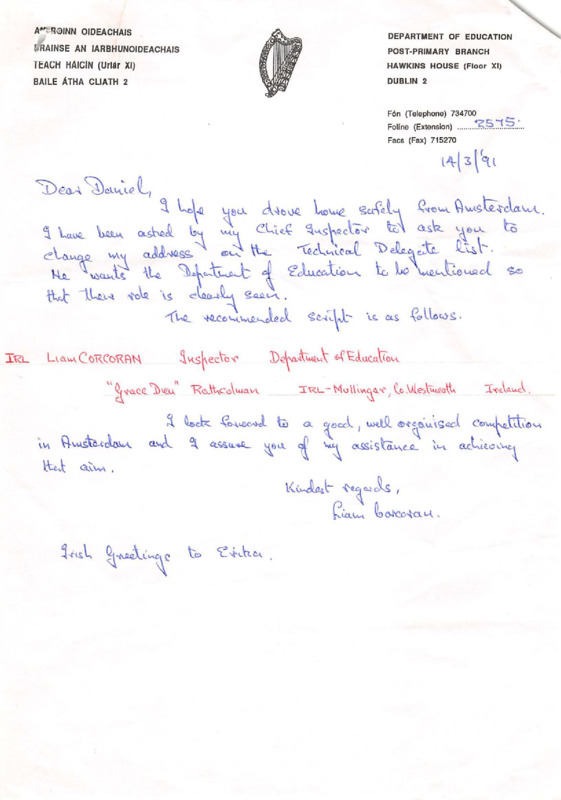 AN ROINN OIDEACHAIS
BRAINSE AN IARBHUNOIDEACHAIS
TEACH HAICÍN (Urlár XI)
BAILE ÁTHA CLIATH 2
DEPARTMENT OF EDUCATION
POST-PRIMARY BRANCH
HAWKINS HOUSE (Floor XI)
DUBLIN 2
Fón (Telephone) 734700
Foline (Extension) 2575.
Facs (Fax) 715270
14/3/'91
Dear Daniel,
I hope you drove home safely from Amsterdam.
I have been asked by my Chief Inspector to ask you to
change my address on the Technical Delegate list.
He wants the Department of Education to be mentioned so
that their role is clearly seen.
The recommended script is as follows.
IRL LIAM CORCORAN Inspector Department of Education
"Grace Dieu" Rathcolman IRL-Mullingar, Co. Westmeath Ireland.
I look forward to a good, well organised competition
in Amsterdam and I assure you of my assistance in achieving
that aim.
Kindest regards,
Liam Corcoran.
Irish Greetings to Erika.